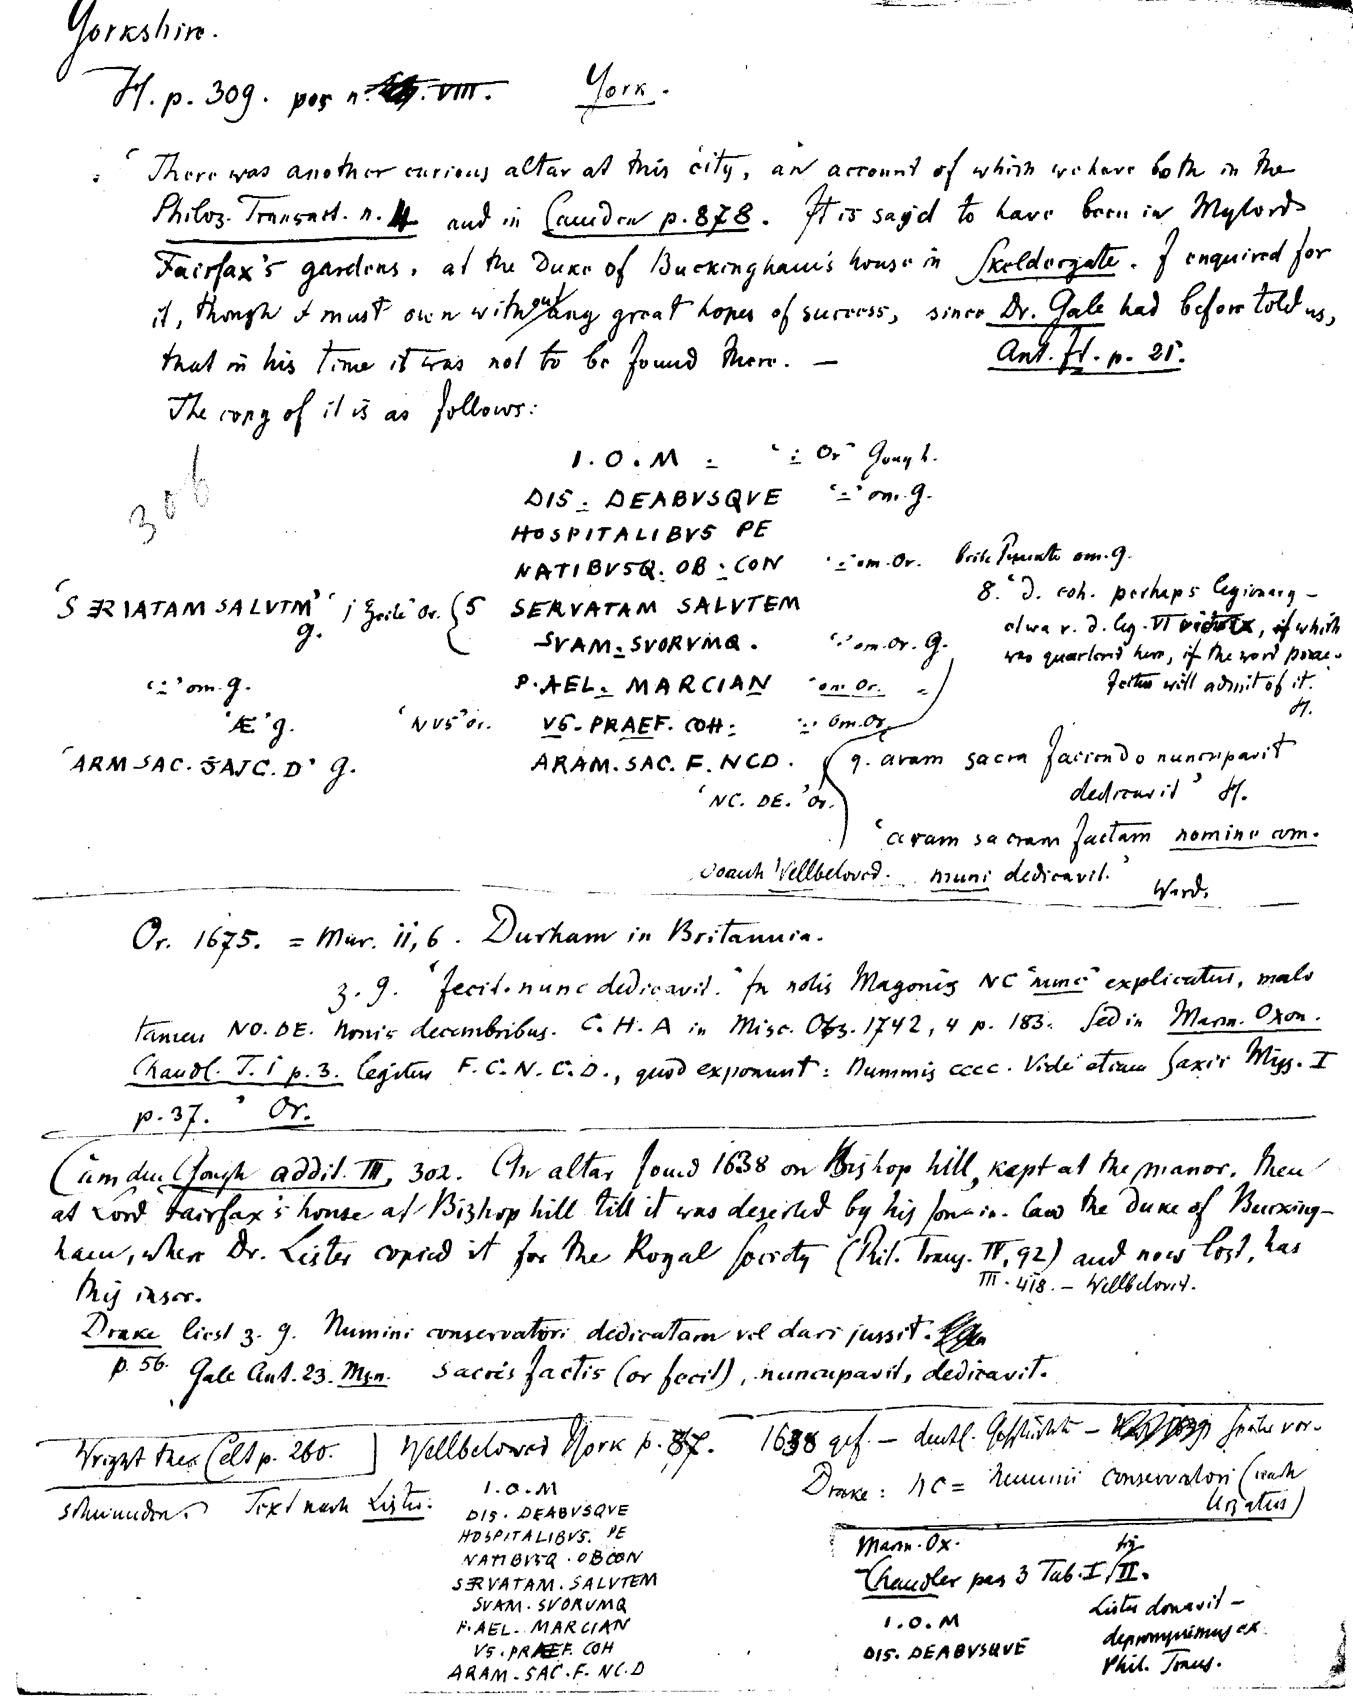 Yorkshire.
H. p. 309. pos n. VIII. York.
'There was another curious altar at this city, an account of which we have both in the
Philos. Transact. n. 4 and in Camden p. 878. It is say'd to have been in Mylords
Fairfax's gardens, at the Duke of Buckingham's house in Skeldergate. I enquired for
it, though I must own without any great hopes of success, since Dr. Gale had before told us,
that in his time it was not to be found there. — Ant. It. p. 21.
The copy of it is as follows:
306
I. O. M : ': Or' Gough.
DIS : DEABVSQVE ':' om. G.
HOSPITALIBVS PE
NATIBVSQ. OB : CON ':' om. Or. om. G.
'SERVATAM SALVTM' G. 1 Zeile Or. { 5 SERVATAM SALVTEM
SVAM. SVORVMQ. ':' om. Or. G.
':' om. G. P. AEL. MARCIAN om. Or.
'Æ' G. 'NVS' Or. VS. PRAEF. COH : om. Or.
'ARM SAC. G. ARAM. SAC. F. NCD.
'NC. DE.' Or.
8. 'D. coh. perhaps legionary –
or v. d. leg. VI victrix, if which
was quartered here, if the word prae-
fectus will admit of it.'
H.
9. aram sacra faciendo nuncupavit
dedicavit' H.
'aram sacram factam nomine com-
muni dedicavit.'
Ward.
Wellbeloved.
Or. 1675. = Mur. ii, 6. Durham in Britannia.
z. 9. 'fecit. nunc dedicavit.' In notis Magonis NC "nunc" explicatur, malo
tamen NO. DE. Nonis decembribus. C. H. A in Misc. Obs. 1742, 4 p. 183. Sed in Marm. Oxon.
Chandl. T. I p. 3. legitur F. C. N. C. D., quod exponunt: Nummis cccc. Vide etiam Saxii Misc. I
p. 37.' Or.
Camden Gough addit. III, 302. An altar found 1638 on Bishop hill, kept at the manor, then
at Lord Fairfax's house at Bishop hill till it was deserted by his son in law the Duke of Bucking-
ham, where Dr. Lister copied it for the Royal Society (Phil. Trans. IV, 92) and now lost, has
III. 418. – Wellbeloved.
this inscr.
Drake liest z. 9. Numini conservatori dedicatam vel dari jussit.
p. 56. Gale Ant. 23. Msn. Sacris factis (or fecit), nuncupavit, dedicavit.
Wright the Celt p. 260. ] Wellbeloved York p. 87. 1638 gef. – später ver-
schwunden. Text nach Lister.
Drake: NC = Numini conservatori (nach
Ursatus)
I. O. M
DIS. DEABVSQVE
HOSPITALIBVS. PE
NATIBVSQ. OBCON
SERVATAM. SALVTEM
SVAM. SVORVMQ
P. AEL. MARCIAN
VS. PRAEF. COH
ARAM. SAC. F. NC. D
Marm. Ox.
Chandler pas 3 Tab. I, II.
I. O. M
DIS. DEABVSQVE
Lister donavit –
depromsimus ex
Phil. Trans.